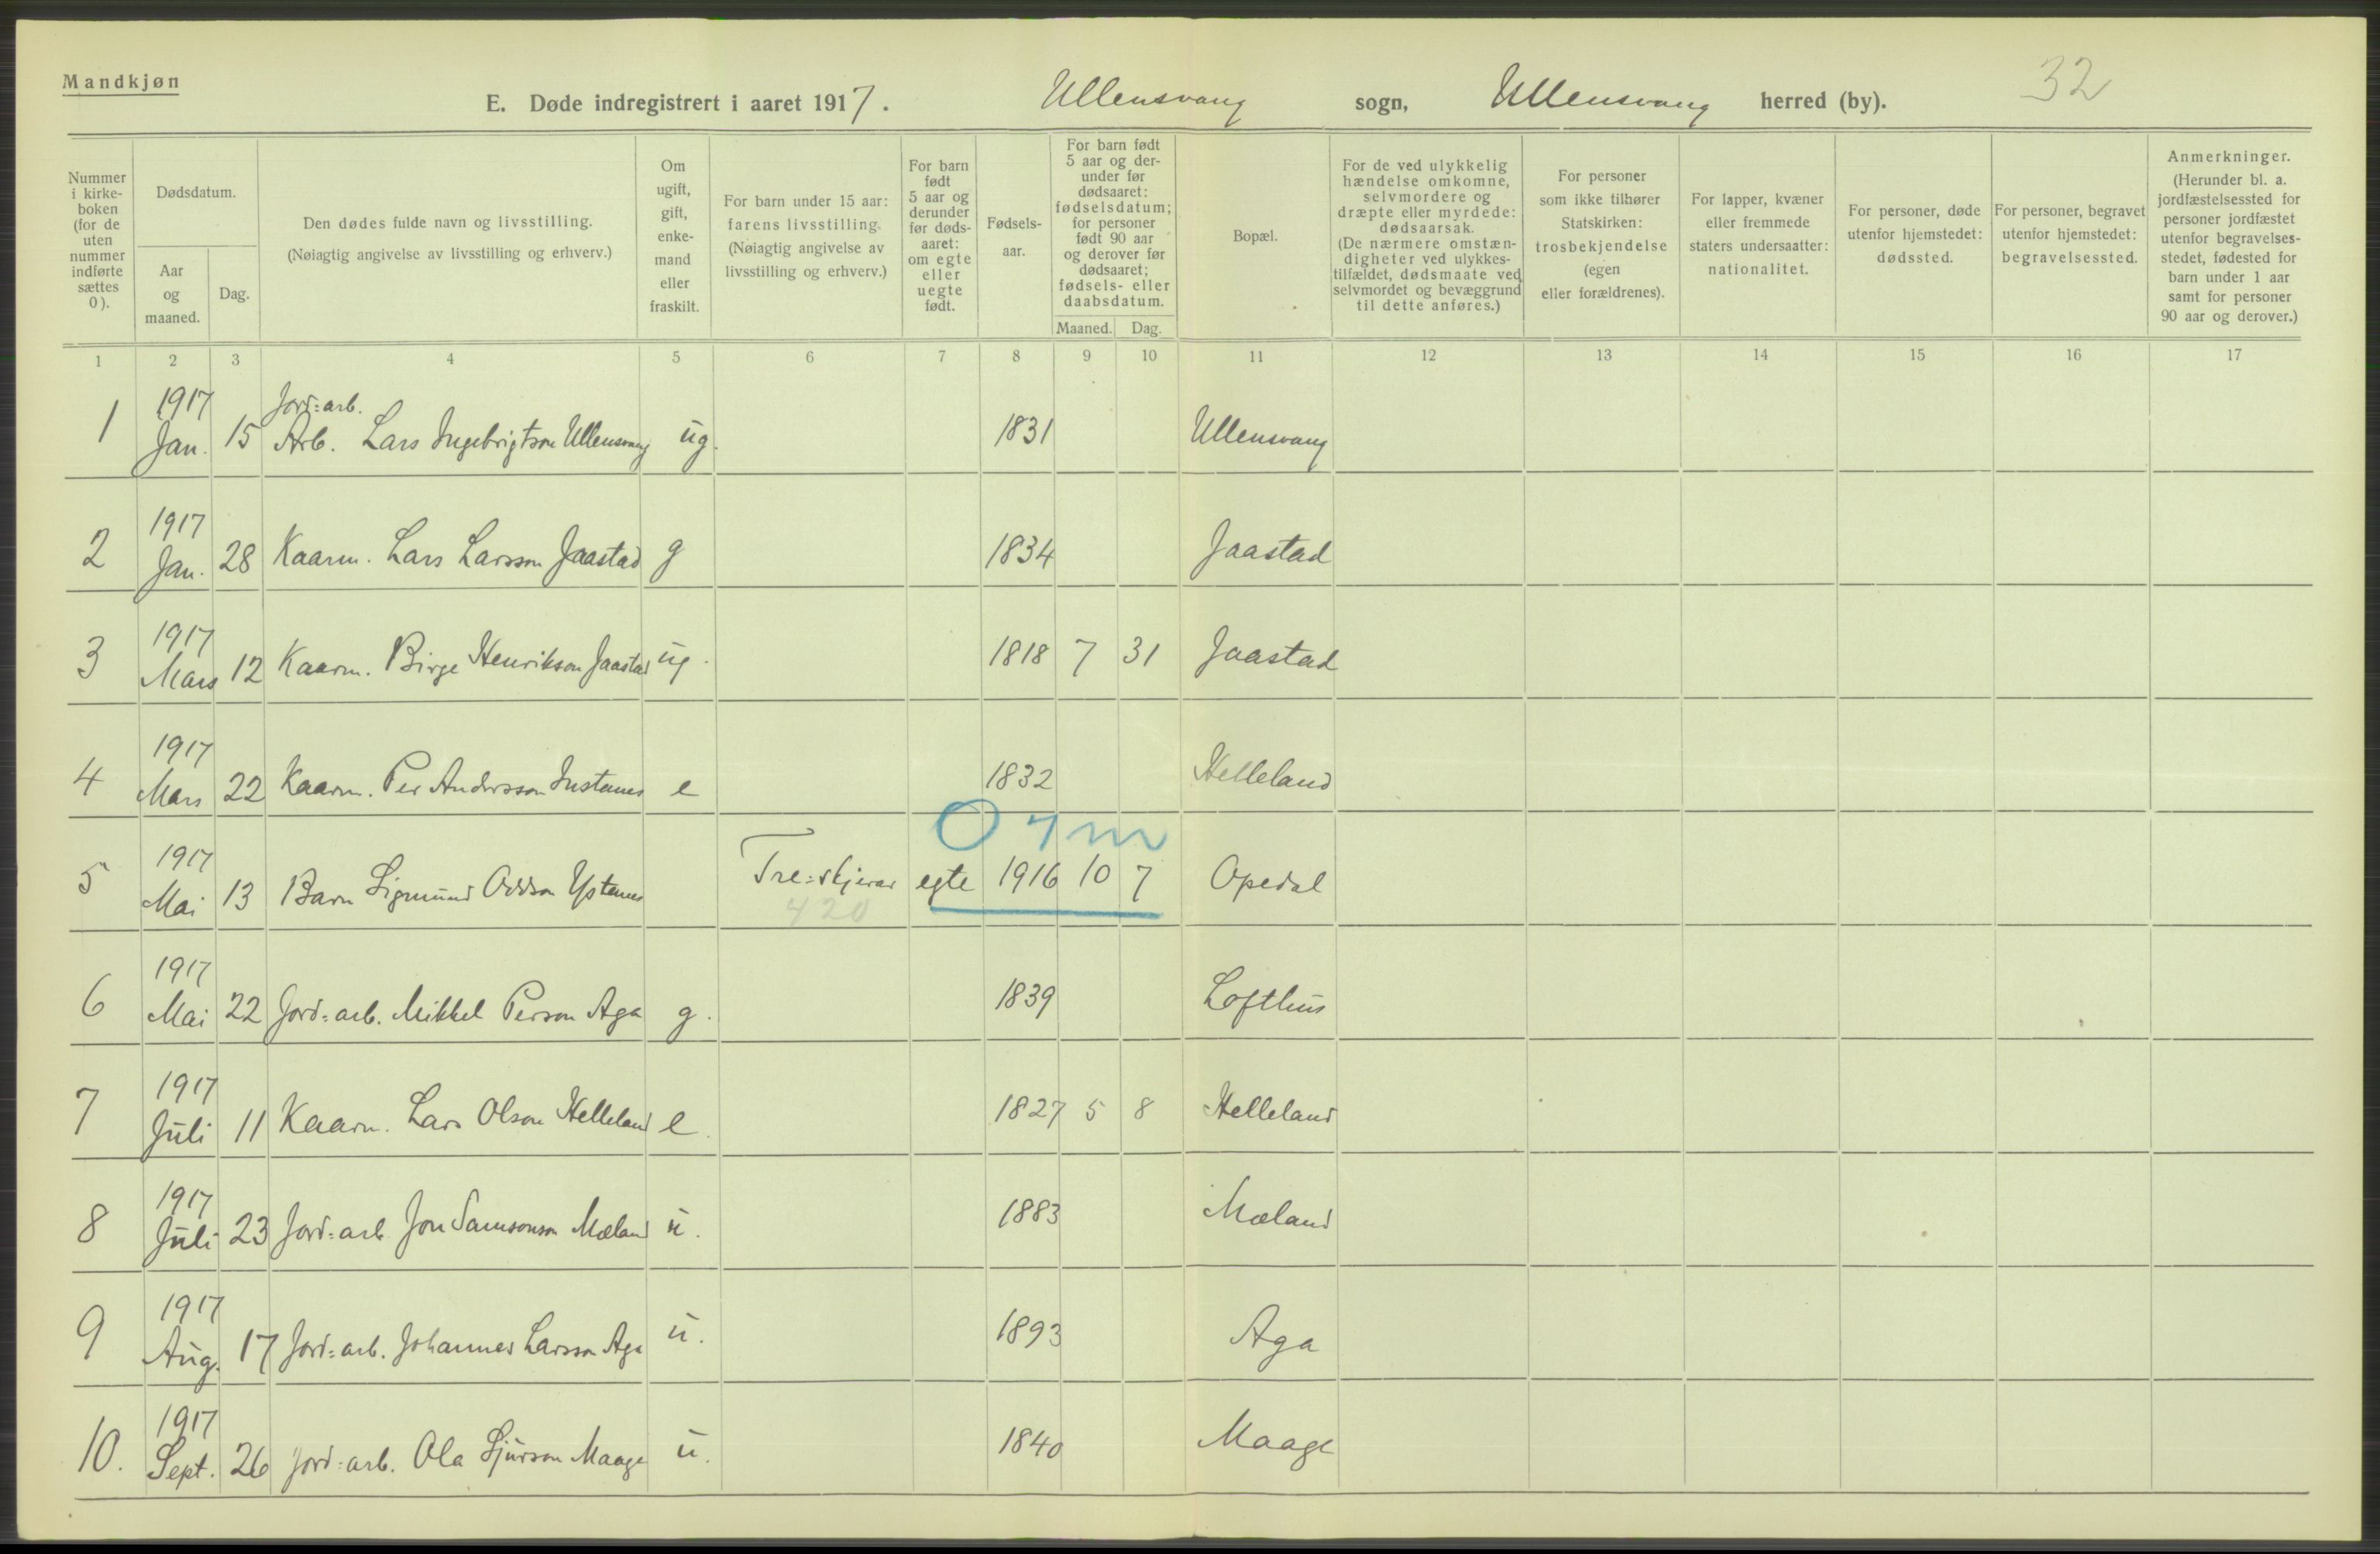 Mandkjøn
E. Døde indregistrert i aaret 1917. Ullensvang sogn, Ullensvang herred (by). 32
Nummer i kirke-boken (for de uten nummer indførte sættes 0).
Dødsdatum.
Aar og maaned.
Dag.
Den dødes fulde navn og livsstilling.
(Nøiagtig angivelse av livsstilling og erhverv.)
Om ugift, gift, enke-mand eller fraskilt.
For barn under 15 aar: farens livsstilling.
(Nøiagtig angivelse av livsstilling og erhverv.)
For barn født 5 aar og derunder før døds-aaret: om egte eller uegte født.
Fødsels-aar.
For barn født 5 aar og der-under før dødsaaret: fødselsdatum; for personer født 90 aar og derover før dødsaaret; fødsels- eller daabsdatum.
Maaned. Dag.
Bopæl.
For de ved ulykkelig hændelse omkomne, selvmordere og dræpte eller myrdede: dødsaarsak.
(De nærmere omstæn-digheter ved ulykkes-tilfældet, dødsmaate ved selvmordet og bevæggrund til dette anføres.)
For personer som ikke tilhører Statskirken: trosbekjendelse (egen eller forældrenes).
For lapper, kvæner eller fremmede staters undersaatter: nationalitet.
For personer, døde utenfor hjemstedet: dødssted.
For personer, begravet utenfor hjemstedet: begravelsessted.
Anmerkninger.
(Herunder bl. a. jordfæstelsessted for personer jordfæstet utenfor begravelses-stedet, fødested for barn under 1 aar samt for personer 90 aar og derover.)
1 2 3 4 5 6 7 8 9 10 11 12 13 14 15 16 17
1917 Jord=arb.
1 Jan. 15 Arb. Lars Ingebrigtson Ullensvang ug. 1831 Ullensvang
1917
2 Jan. 28 Kaarm. Lars Larsson Jaastad g 1834 Jaastad
1917
3 Mars 12 Kaarm. Birge Henrikson Jaastad ug. 1818 7 31 Jaastad
1917
4 Mars 22 Kaarm. Per Andersson Instenes e 1832 Helleland
0 7 m
1917
5 Mai 13 Barn Sigmund Oddson Ystenes Tre=skjerar egte 1916 10 7 Opedal
420
1917
6 Mai 22 Jord=arb. Mikkel Person Aga g. 1839 Lofthus
1917
7 Juli 11 Kaarm. Lars Olson Helleland e. 1827 5 8 Helleland
1917
8 Juli 23 Jord=arb. Jon Samsonson Mæland u. 1883 Mæland
1917
9 Aug. 17 Jord=arb. Johannes Larsson Aga u. 1893 Aga
1917
10. Sept. 26 Jord=arb. Ola Sjurson Maage u. 1840 Maage